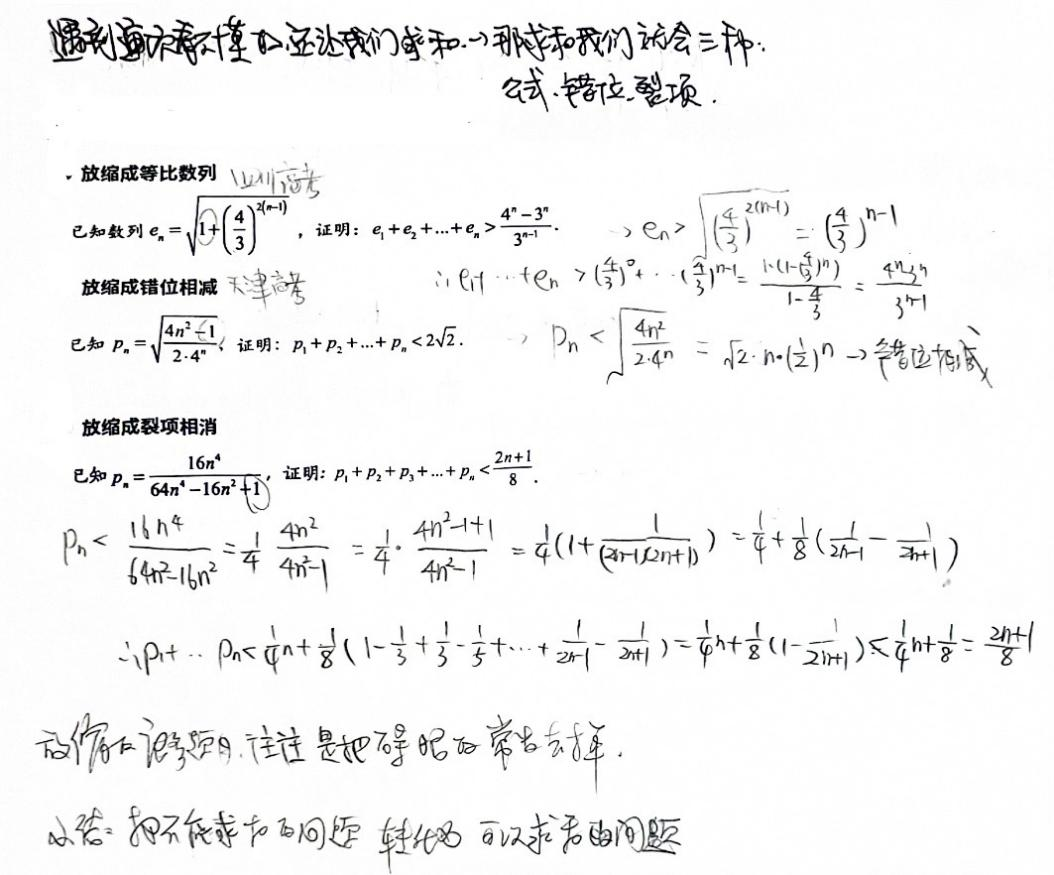 遇到通项看不懂的还让我们求和→那求和我们就会三种:
公式、错位、裂项.
· 放缩成等比数列 四川高考
已知数列 eₙ=√(1+(4/3)^(2(n-1))) ，证明：e₁+e₂+...+eₙ>(4ⁿ-3ⁿ)/3ⁿ⁻¹. → eₙ>√((4/3)^(2(n-1))) = (4/3)^(n-1)
∴e₁+…+eₙ >(4/3)⁰+…(4/3)ⁿ⁻¹= 1·(1-(4/3)ⁿ)/(1-4/3) = (4ⁿ-3ⁿ)/3ⁿ⁻¹
放缩成错位相减 天津高考
已知 pₙ=√((4n²-1)/(2·4ⁿ))，证明：p₁+p₂+...+pₙ<2√2. → Pₙ < √(4n²/(2·4ⁿ)) = √2·n·(1/2)ⁿ → 错位相减
放缩成裂项相消
已知 pₙ=16n⁴/(64n⁴-16n²+1)，证明：p₁+p₂+p₃+...+pₙ<(2n+1)/8.
Pₙ< 16n⁴/(64n²-16n²) = 1/4 4n²/(4n²-1) = 1/4 · (4n²-1+1)/(4n²-1) = 1/4(1+1/((2n-1)(2n+1))) = 1/4+1/8(1/(2n-1) - 1/(2n+1))
∴P₁+… Pₙ<1/4n+1/8(1-1/3+1/3-1/5+…+1/(2n-1)-1/(2n+1))=1/4n+1/8(1-1/(2n+1))<1/4n+1/8=(2n+1)/8
放缩的记号题目.往往是把碍眼的常数去掉.
小结: 把不能求和的问题 转化为 可以求和的问题